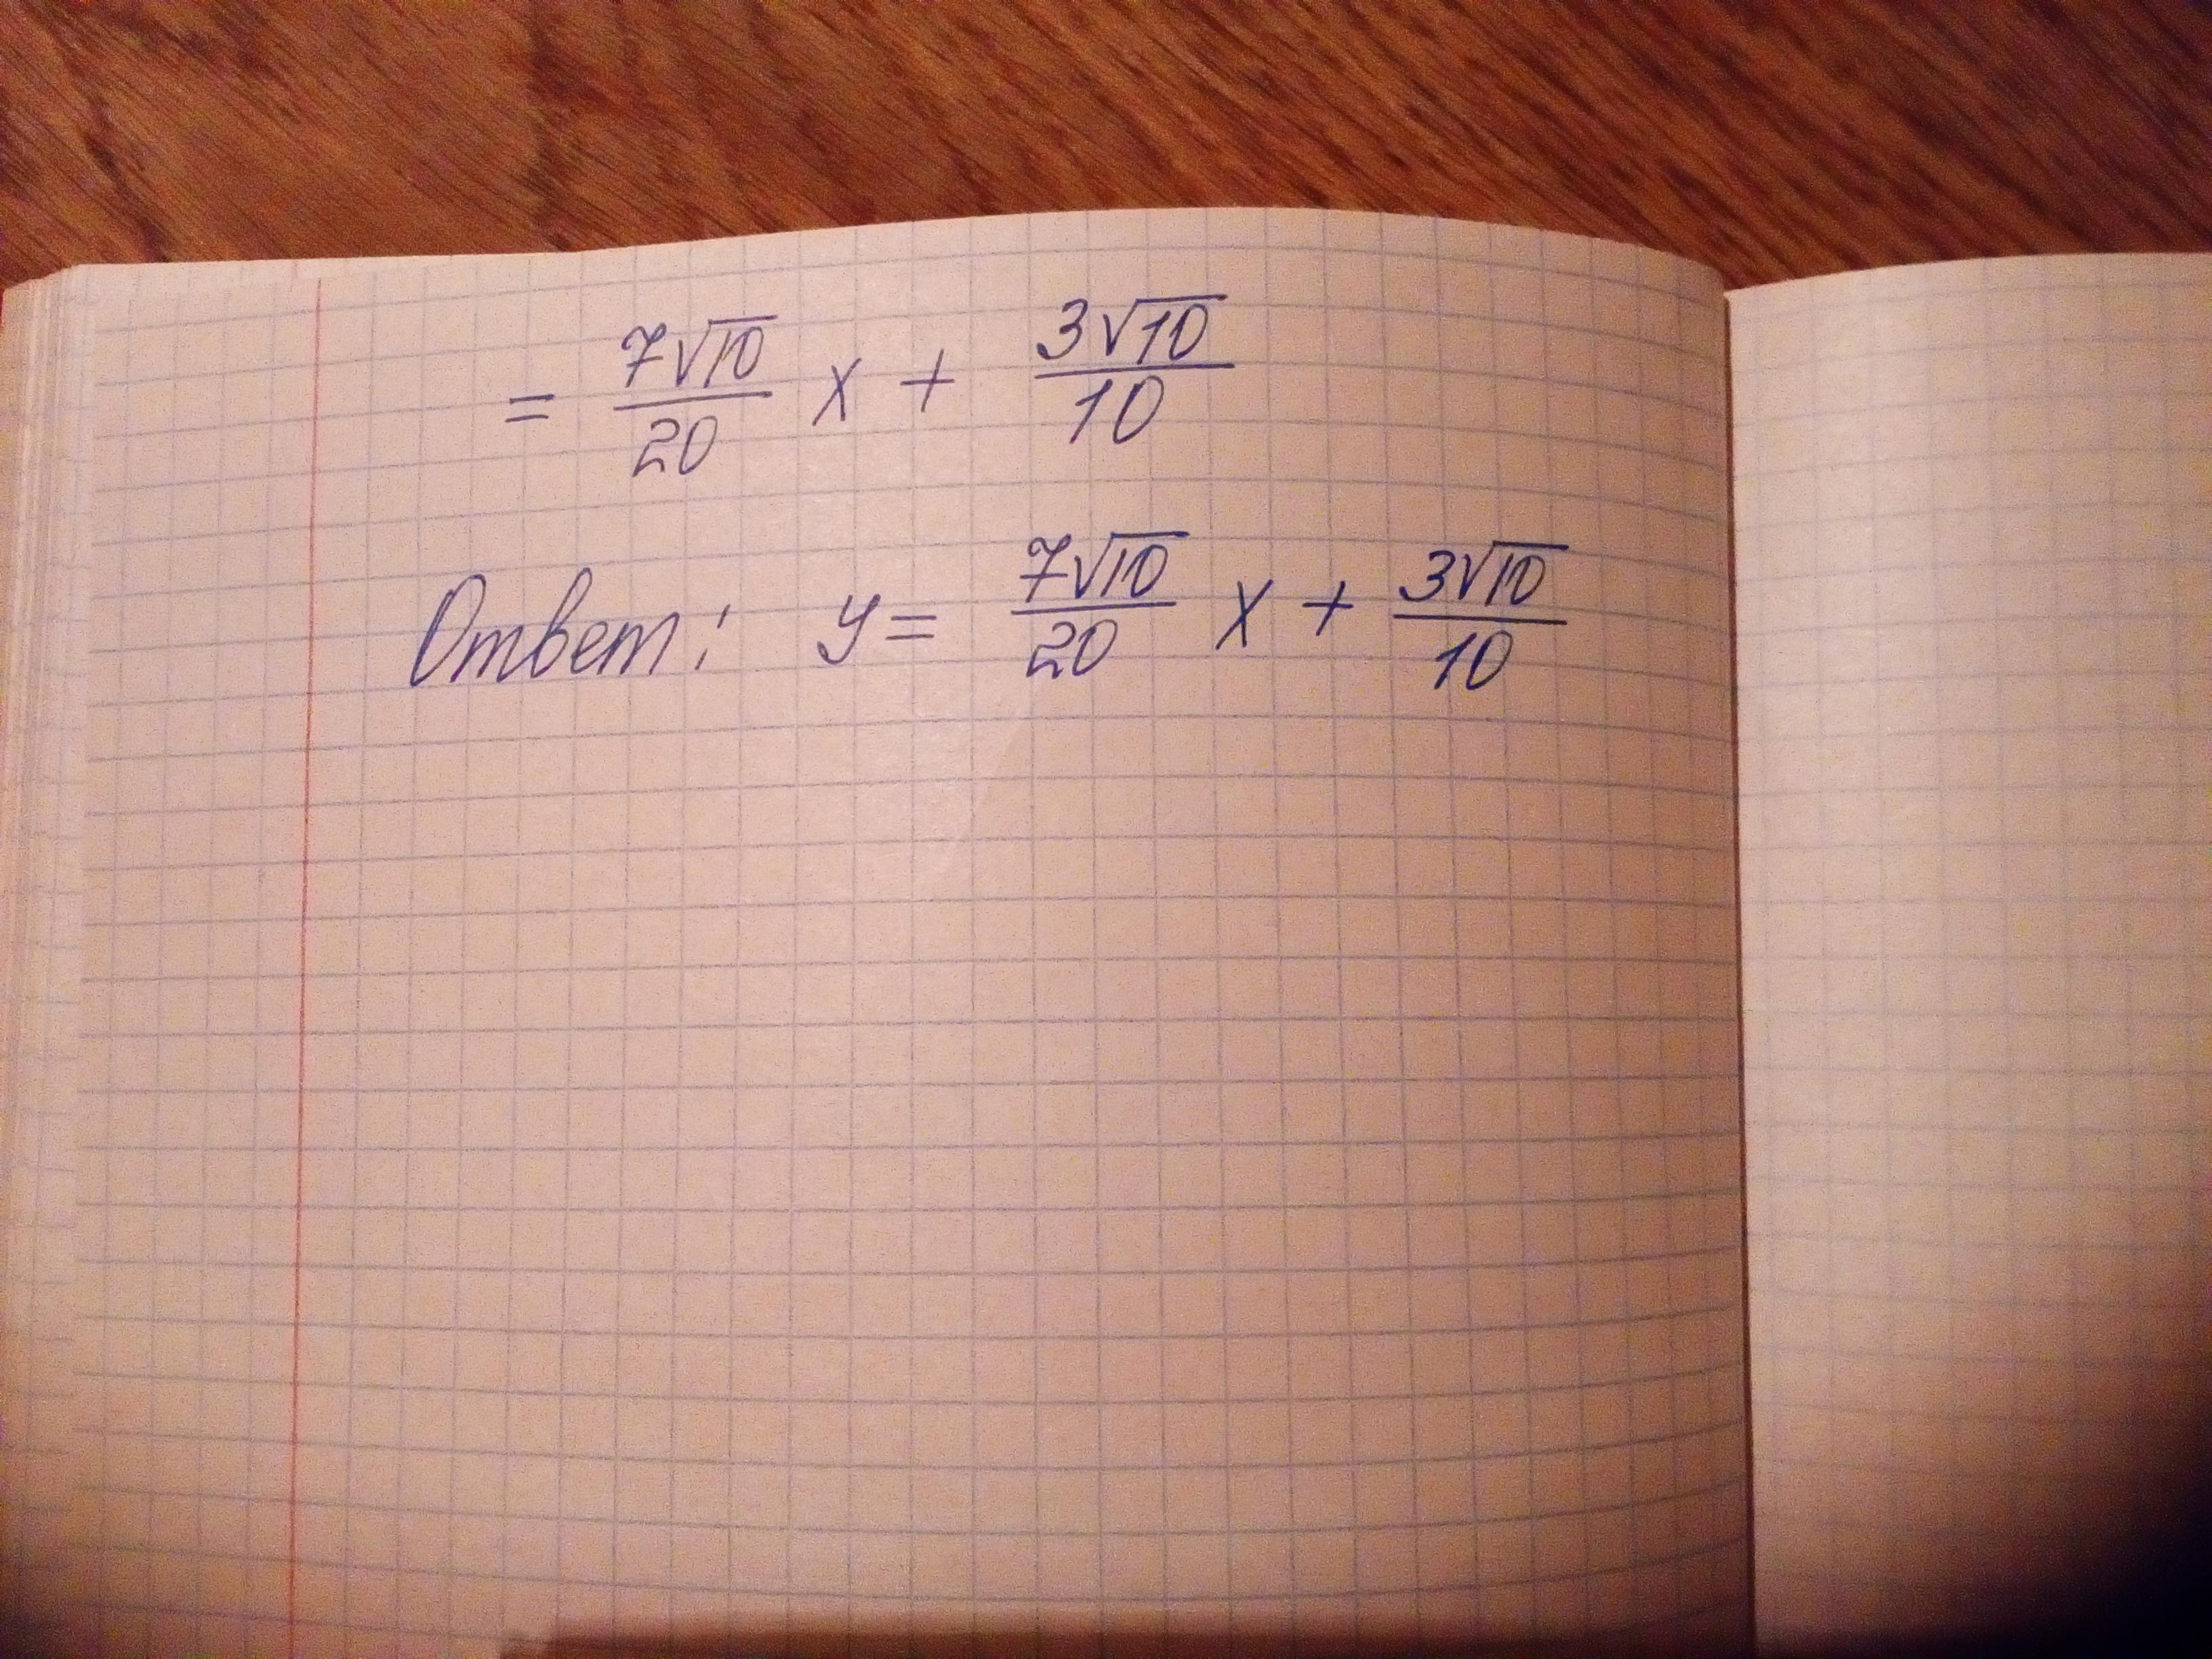 = 7√10/20 x + 3√10/10
Ответ: y = 7√10/20 x + 3√10/10